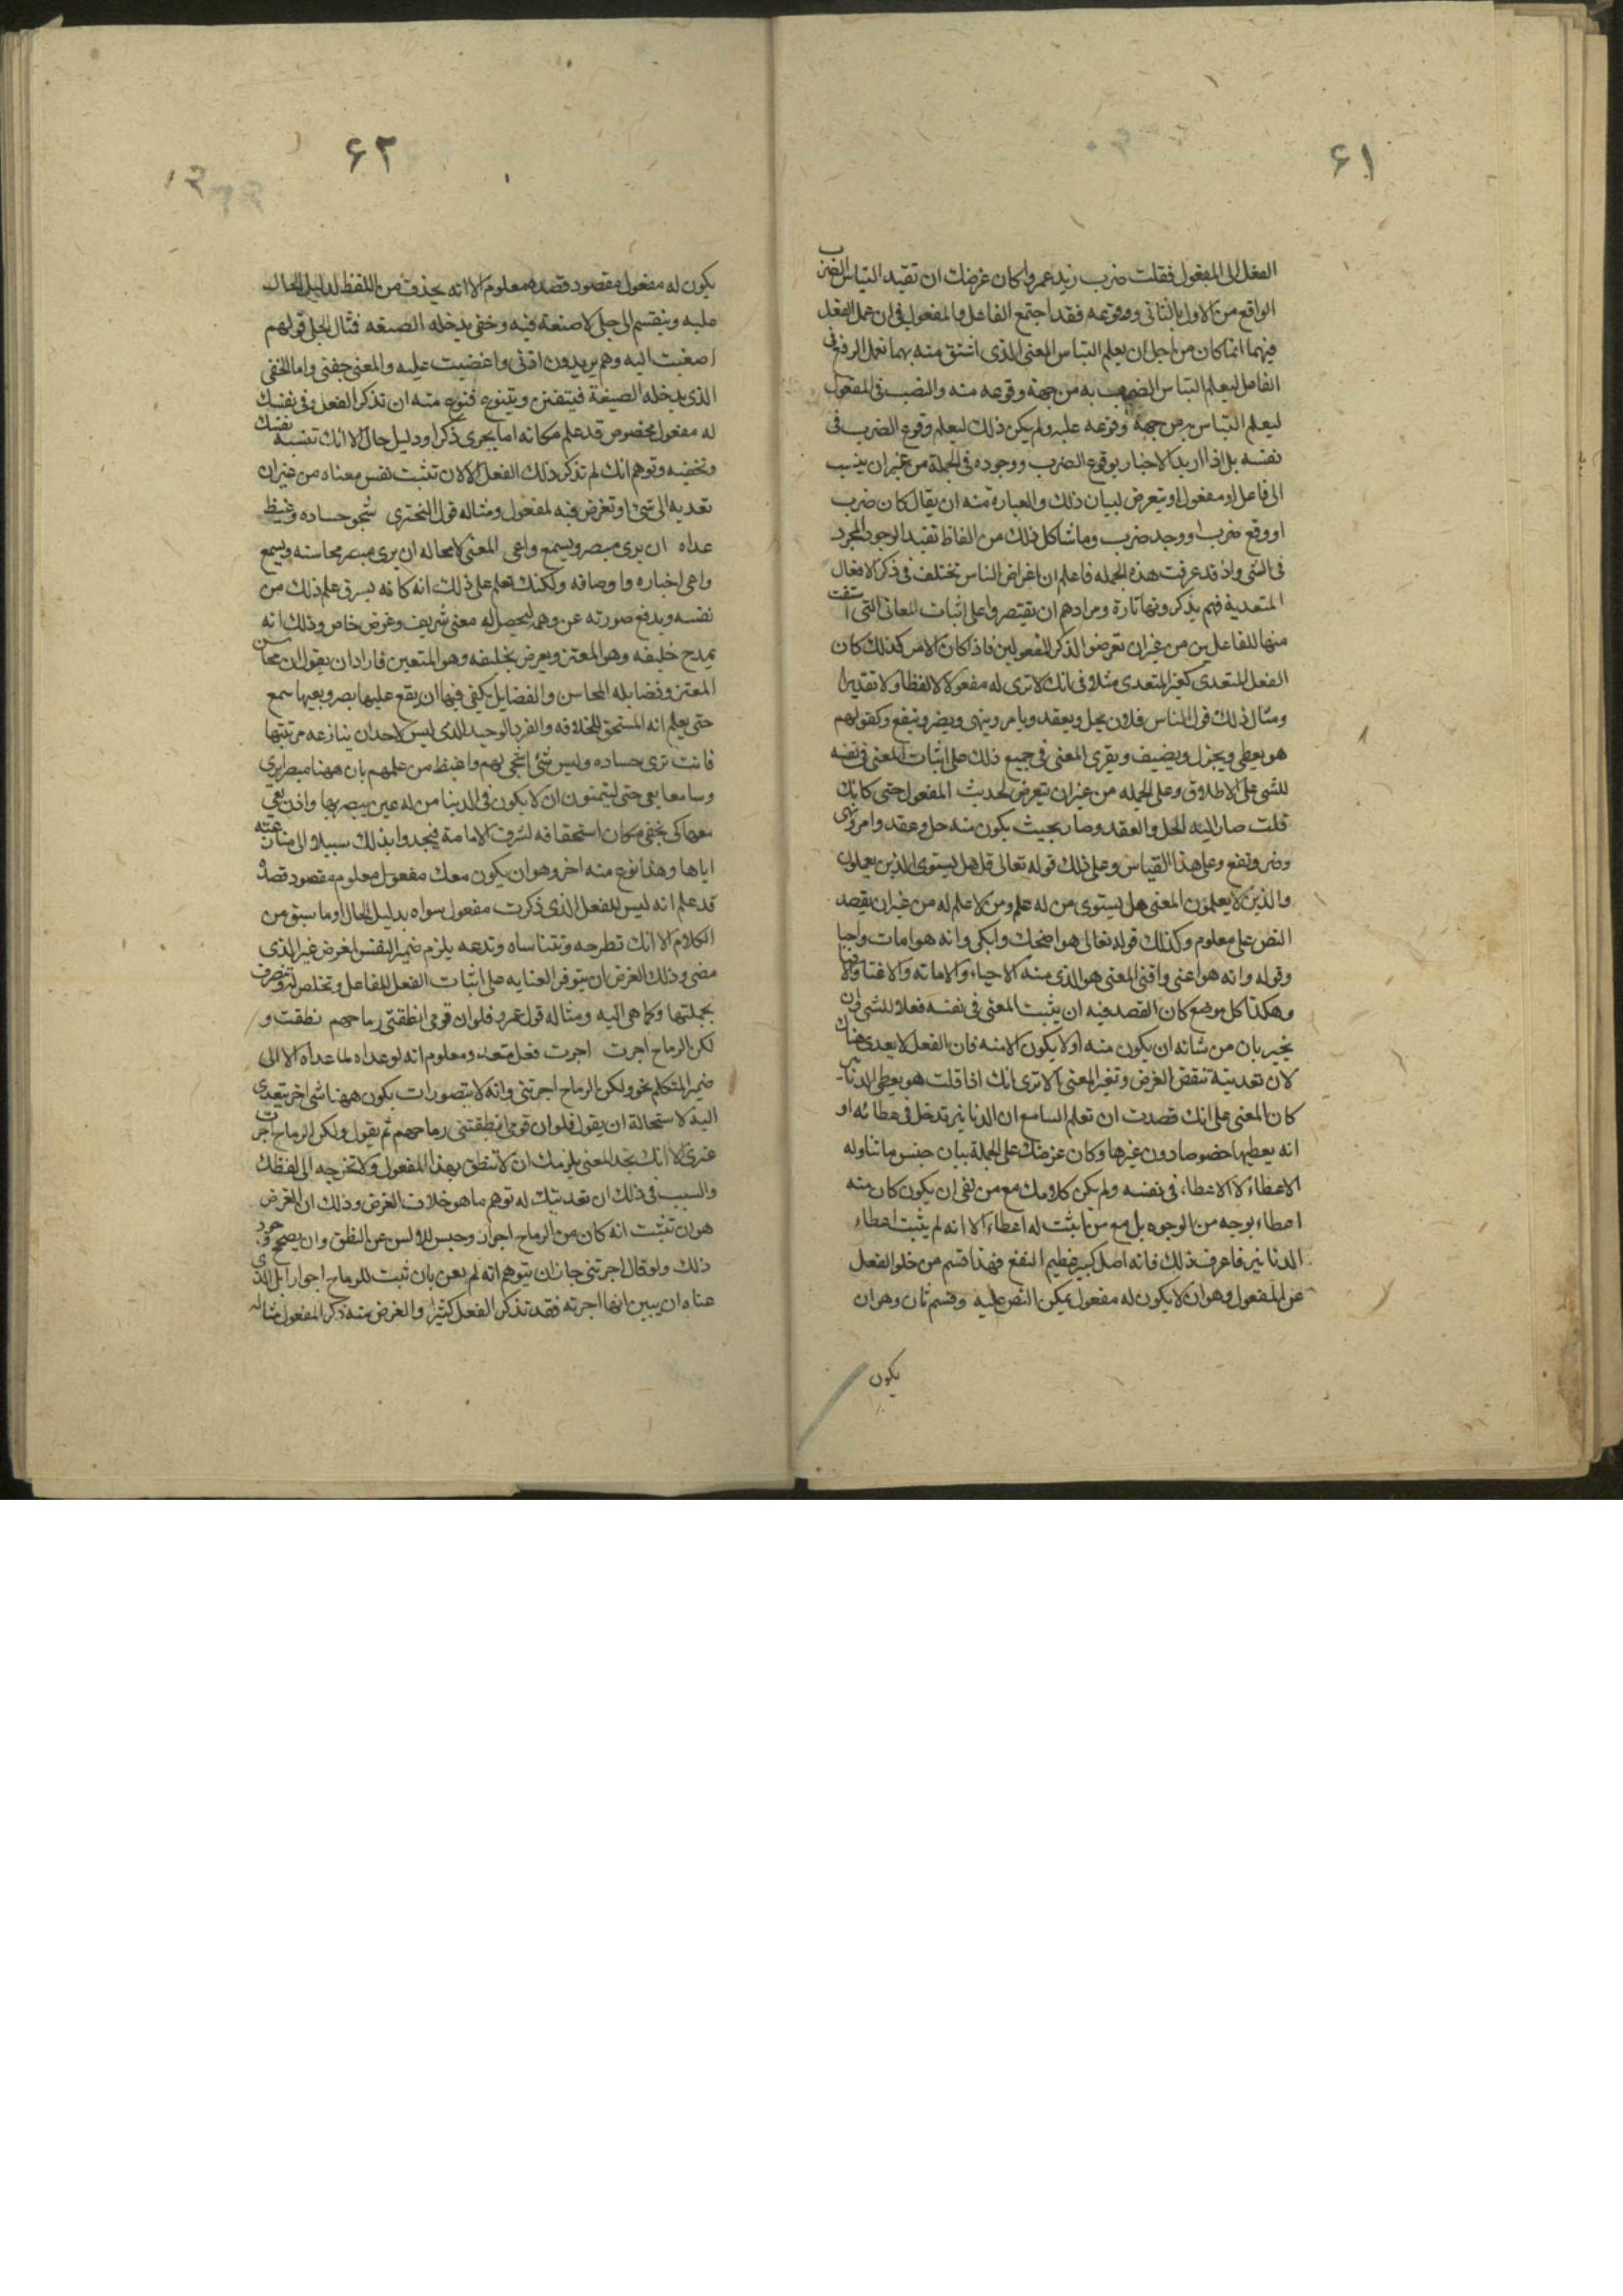 ۶۱
الفعل الى المفعول فقلت ضرب زيد عمروا كان غرضك ان تفيد التباس الضرب
الواقع من الاول بالثانى ووقوعه فقد اجتمع الفاعل والمفعول فى ان عمل الفعل
فيهما انما كان من اجل ان يعلم التباس المعنى الذى اشتق منه بهما فعمل الرفع فى
الفاعل ليعلم التباس الضرب به من جهة وقوعه منه والنصب فى المفعول
ليعلم التباس به من جهة وقوعه عليه ولم يكن ذلك ليعلم وقوع الضرب فى
نفسه بل اذا اريد الاخبار بوقوع الضرب ووجوده فى الجملة من غير ان ينسب
الى فاعل او مفعول او يتعرض لبيان ذلك والعبارة منه ان يقال كان ضرب
او وقع ضرب او وجد ضرب وما شاكل ذلك من الفاظ تفيد الوجود المجرد
فى الشى واذ قد عرفت هذه الجمله فاعلم ان اغراض الناس تختلف فى ذكر الافعال
المتعدية فهم يذكرونها تارة ومرادهم ان يقتصروا على اثبات المعانى التى اشتقت
منها للفاعلين من غير ان تعرضوا لذكر المفعولين فاذا كان الامر كذلك كان
الفعل المتعدى كغير المتعدى مثلا فى انك لا ترى له مفعولا لا لفظا ولا تقديرا
ومثال ذلك قول الناس فلان يحل ويعقد ويامر وينهى ويضر وينفع وكقولهم
هو يعطى ويجزل ويضيف ويقرى المعنى فى جميع ذلك على اثبات المعنى فى نفسه
للشى على الاطلاق وعلى الجمله من غير ان يتعرض لحديث المفعول حتى كانك
قلت صار اليه الحل والعقد وصار بحيث يكون منه حل وعقد وامر ونهى
وضر ونفع وعلى هذا القياس وعلى ذلك قوله تعالى قل هل يستوى الذين يعلمون
والذين لا يعلمون المعنى هل يستوى من له علم ومن لا علم له من غير ان يقصد
النص على معلوم وكذلك قوله تعالى هو اضحك وابكى وانه هو امات واحيا
وقوله وانه هو اغنى واقنى المعنى هو الذى منه الاحياء والاماته والاغنا والاقنا
وهكذا كل موضع كان القصد فيه ان يثبت المعنى فى نفسه فعلا للشى وان
يخبر بان من شانه ان يكون منه اولا يكون الا منه فان الفعل لا يعدى هناك
لان تعديته تنقض الغرض وتغير المعنى الا ترى انك اذا قلت هو يعطى الدنانير
كان المعنى على انك قصدت ان تعلم السامع ان الدنانير تدخل فى عطائه او
انه يعطيها خصوصا دون غيرها وكان غرضك على الجملة بيان جنس ما تناوله
الاعطاء لا الاعطاء فى نفسه ولم يكن كلامك مع من نفى ان يكون كان منه
اعطاء بوجه من الوجوه بل مع من اثبت له اعطاء الا انه لم يثبت اعطاء
الدنانير فاعرف ذلك فانه اصل كبير عظيم النفع فهذا قسم من خلو الفعل
عن المفعول وهو ان لا يكون له مفعول يمكن النص عليه وقسم ثان وهو ان
يكون
۶۲
يكون له مفعول مقصود قصده معلوم الا انه يحذف من اللفظ لدليل الحال
عليه وينقسم الى جلى لا صنعة فيه وخفى يدخله الصنعه فمثال الجلى قولهم
اصغيت اليه وهم يريدون اذنى واغضيت عليه والمعنى جفنى واما الخفى
الذى يدخله الصيغة فيتفنن ويتنوع فنوع منه ان تذكر الفعل وفى نفسك
له مفعول مخصوص قد علم مكانه اما بجرى ذكر او دليل حال الا انك تنسه نفسك
وتخفيه وتوهم انك لم تذكر ذلك الفعل الا لان تثبت نفس معناه من غير ان
تعديه الى شئ او تعرض فيه لمفعول ومثاله قول البخترى شجو حساده وغيظ
عداه ان يرى مبصر ويسمع واعى المعنى لا محاله ان يرى مبصر محاسنه ويسمع
واعى اخباره واوصافه ولكنك تعلم على ذلك انه كانه يسرق علم ذلك من
نفسه ويدفع صورته عن وهمه ليحصل له معنى شريف وغرض خاص وذلك انه
يمدح خليفه وهو المعتز ويعرض بخليفه وهو المستعين فاراد ان يقول ان محاسن
المعتز وفضايله المحاسن والفضايل يكفى فيها ان يقع عليها بصر ويعيها سمع
حتى يعلم انه المستحق للخلافه والفرد الوحيد الذى ليس لاحد ان ينازعه مرتبتها
فانت ترى حساده وليس شئ اشجى لهم واغيظ من علمهم بان ههنا مبصرا يرى
وسامعا يعى حتى ليتمنون ان لا يكون فى الدينا من له عين يبصر بها واذن يعى
معها كى يخفى مكان استحقاقه لشرف الامامة فيجدوا بذلك سبيلا الى منازعته
اياها وهذا نوع منه اخر وهو ان يكون معك مفعول معلوم مقصود قصده
قد علم انه ليس للفعل الذى ذكرت مفعول سواه بدليل الحال او ما سبق من
الكلام الا انك تطرحه وتتناساه وتدعه يلزم ضمير النفس لغرض غير الذى
مضى وذلك الغرض ان يتوفر العنايه على اثبات الفعل للفاعل وتخلص له وتنصرف
بجملتها وكما هى اليه ومثاله قول عمرو فلو ان قومى انطقتنى رماحهم نطقت و
لكن الرماح اجرت اجرت فعل متعد ومعلوم انه لو عداه لما عداه الا الى
ضمير المتكلم نحو ولكن الرماح اجرتنى وانه لا يتصور ان يكون ههنا شى اخر يتعدى
اليه لاستحالة ان يقول فلو ان قومى انطقتنى رماحهم ثم يقول ولكن الرماح اجرت
غيرى الا انك تجد المعنى يلزمك ان لا تنطق بهذا المفعول ولا تخرجه الى لفظك
والسبب فى ذلك ان تعديتك له توهم ما هو خلاف الغرض وذلك ان الغرض
هو ان تثبت انه كان من الرماح اجرار وحبس للالسن عن النطق وان يصحح وجود
ذلك ولو قال اجرتنى جاز ان يتوهم انه لم يعن بان ثبت للرماح اجرارا بل الذى
عناه ان يبين انها اجرته فقد تذكر الفعل كثيرا والغرض منه ذكر المفعول مثاله